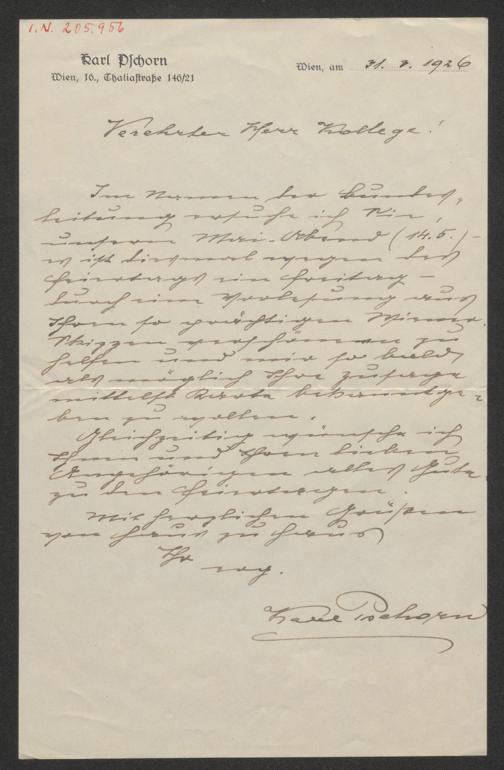 I.N. 205.956
Karl Pschorn
Wien, 16., Thaliastraße 146/21
Wien, am 31. 3. 1926
Verehrter Herr Kollege!
Im Namen der Bundes-
leitung ersuche ich Sie,
unseren Mai-Abend (14.5.) –
es ist diesmal wegen des
Feiertags ein Freitag –
durch eine Vorlesung aus
Ihren so prächtigen Wiener
Skizzen verschönern zu
helfen und mir so bald
als möglich Ihre Zusage
mittelst Karte bekanntge-
ben zu wollen.
Gleichzeitig wünsche ich
Ihnen und Ihren lieben
Angehörigen alles Gute
zu den Feiertagen.
Mit herzlichen Grüßen
von Haus zu Haus
Ihr
erg.
Karl Pschorn